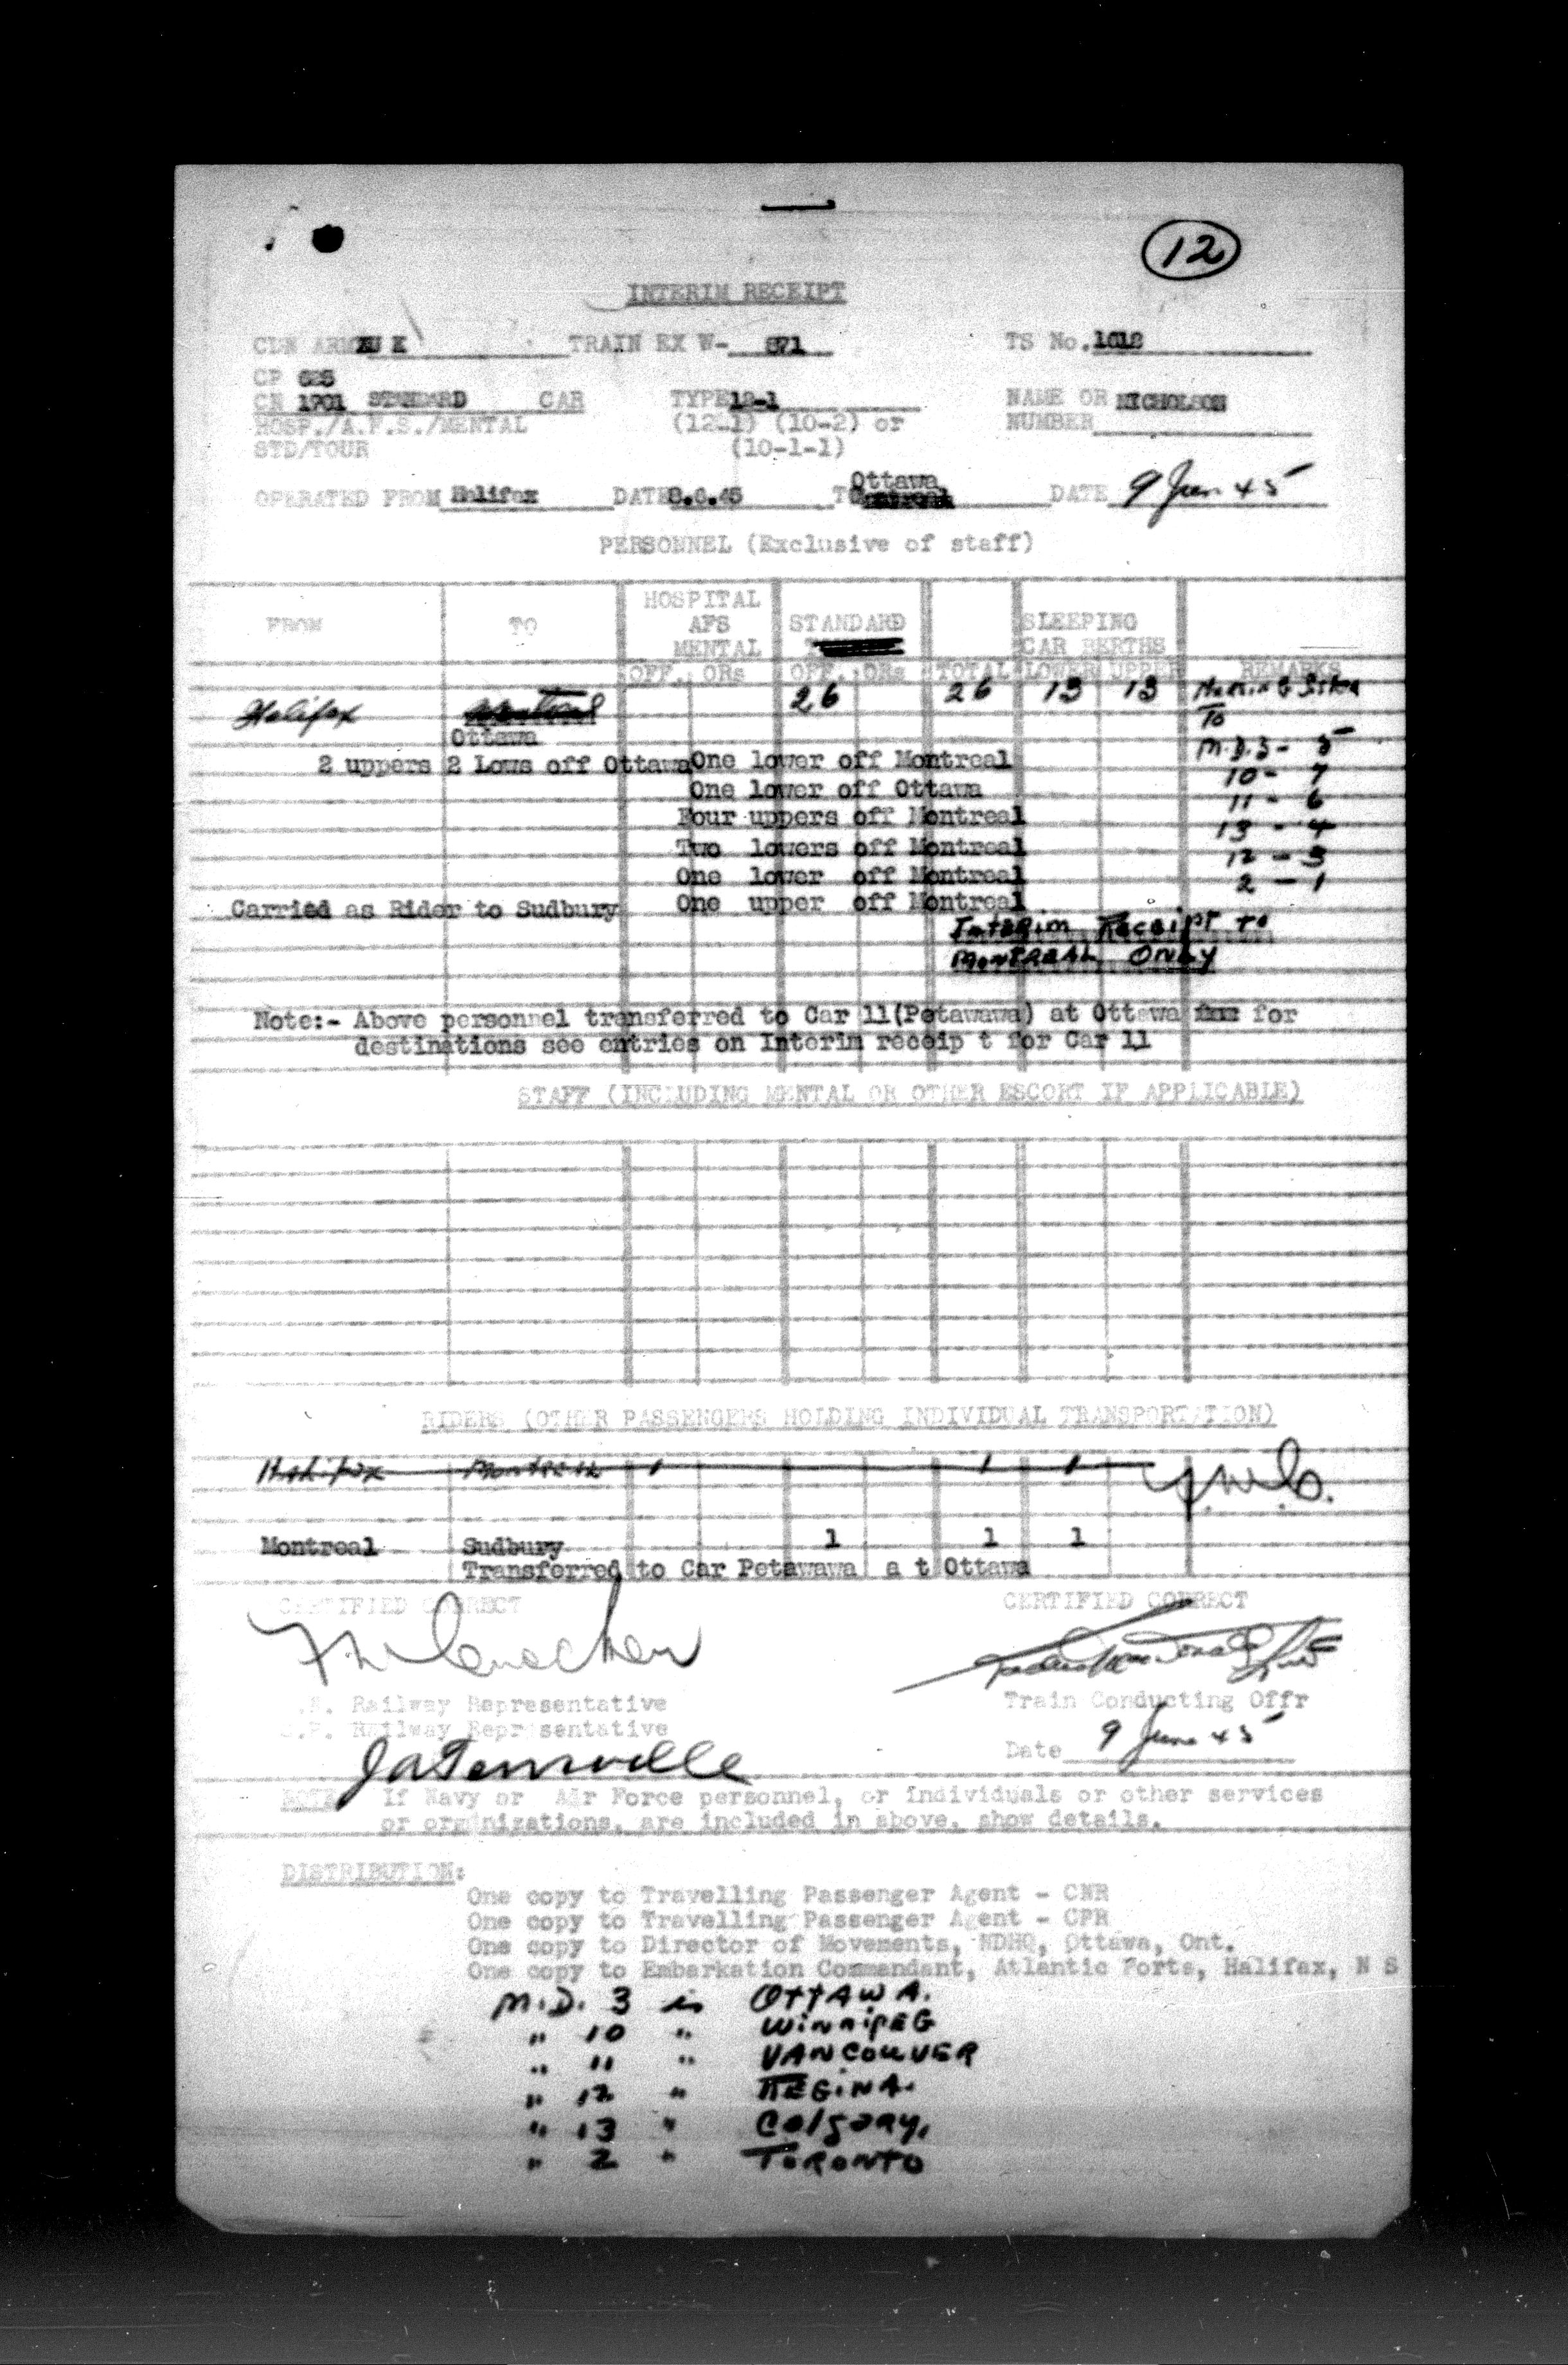 12
INTERIM RECEIPT
CDN ARMY TRAIN EX W- 871 TS No. 1612
CP
CN 1701 STANDARD CAR TYPE 12-1 NAME OR NICHOLSON
HOSP./A.F.S./MENTAL (12-1) (10-2) or NUMBER
STD/TOUR (10-1-1)
Ottawa
OPERATED FROM Halifax DATE 8.6.45 TO Montreal DATE 9 Jun 45
PERSONNEL (Exclusive of staff)
FROM TO HOSPITAL AFS MENTAL STANDARD SLEEPING CAR BERTHS
OFF. ORs OFF. ORs TOTAL LOWER UPPER REMARKS
Halifax Montreal 26 26 13 13 Nursing Sister
Ottawa To
2 uppers 2 Lows off Ottawa One lower off Montreal M.D. 3 - 5
One lower off Ottawa 10 - 7
Four uppers off Montreal 11 - 6
Two lowers off Montreal 13 - 4
One lower off Montreal 12 - 3
Carried as Rider to Sudbury One upper off Montreal 2 - 1
Interim Receipt to
MONTREAL ONLY
Note:- Above personnel transferred to Car 11(Petawawa) at Ottawa for
destinations see entries on Interim receip t for Car 11
STAFF (INCLUDING MENTAL OR OTHER ESCORT IF APPLICABLE)
RIDERS (OTHER PASSENGERS HOLDING INDIVIDUAL TRANSPORTATION)
Halifax Montreal 1 1 1
Montreal Sudbury 1 1 1
Transferred to Car Petawawa a t Ottawa
CERTIFIED CORRECT CERTIFIED CORRECT
.N. Railway Representative Train Conducting Offr
C.P. Railway Representative
Date 9 June 45
NOTE If Navy or Air Force personnel, or individuals or other services
or organizations, are included in above, show details.
DISTRIBUTION:
One copy to Travelling Passenger Agent - CNR
One copy to Travelling Passenger Agent - CPR
One copy to Director of Movements, NDHQ, Ottawa, Ont.
One copy to Embarkation Commandant, Atlantic Ports, Halifax, N S
M.D. 3 is OTTAWA.
" 10 " WINNIPEG
" 11 " VANCOUVER
" 12 " REGINA.
" 13 " Calgary,
" 2 " TORONTO